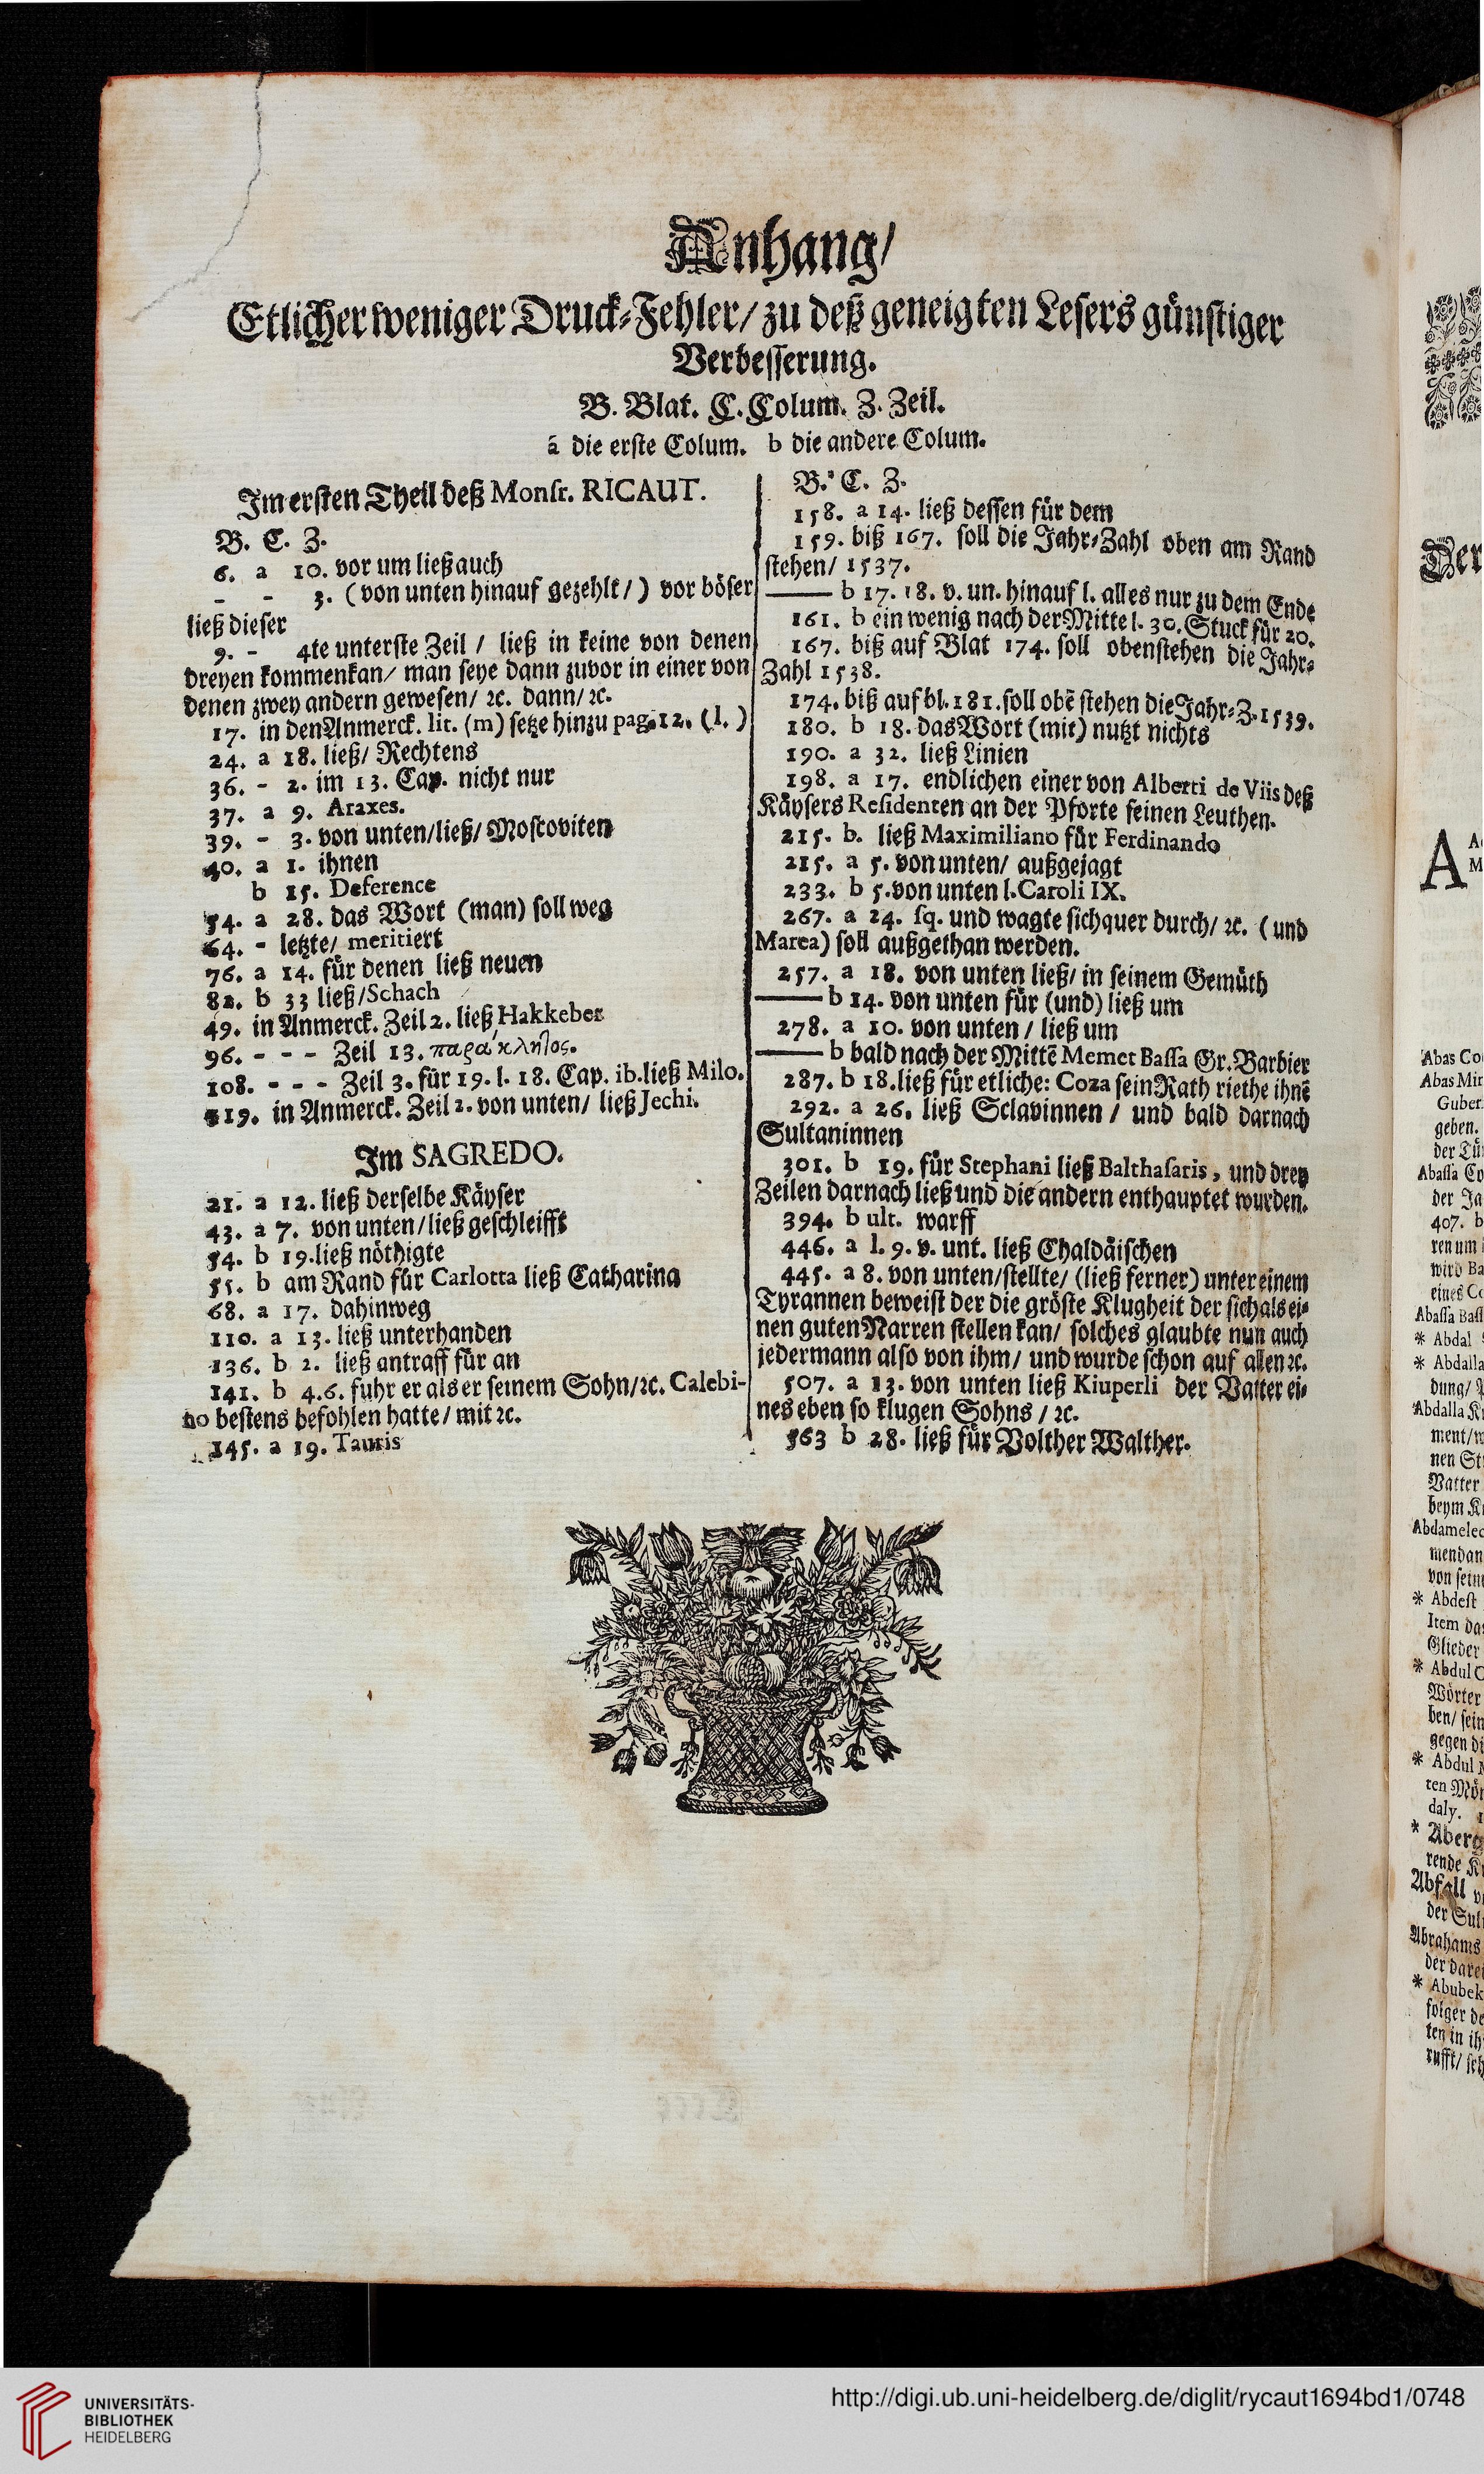 Anhang/
Etlicher weniger Druck-Fehler/ zu deß geneigten Lesers günstiger
Verbesserung.
B. Blat. C. Colum. Z. Zeil.
a die erste Colum. b die andere Colum.
Im ersten Theil deß Monsr. RICAUT.
B. C. Z.
6. a 10. vor um ließ auch
- - 3. (von unten hinauf gezehlt/) vor böser
ließ dieser
9. - 4te unterste Zeil / ließ in keine von denen
dreyen kommen kan/ man seye dann zuvor in einer von
denen zwey andern gewesen/ ꝛc. dann/ ꝛc.
17. in den Anmerck. lit. (m) setze hinzu pag. 12. (l. )
24. a 18. ließ/ Rechtens
36. - 2. im 13. Cap. nicht nur
37. a 9. Araxes.
39. - 3. von unten/ließ/ Moscoviten
40. a 1. ihnen
b 15. Deference
54. a 28. das Wort (man) soll weg
64. - letzte/ meritiert
76. a 14. für denen ließ neuen
82. b 33 ließ/Schach
49. in Anmerck. Zeil 2. ließ Hakkeber
96. - - - Zeil 13. παράκλητος.
108. - - - Zeil 3. für 19. l. 18. Cap. ib. ließ Milo.
119. in Anmerck. Zeil 2. von unten/ ließ Jechi.
Im SAGREDO.
21. a 12. ließ derselbe Käyser
43. a 7. von unten/ließ geschleifft
54. b 19. ließ nöthigte
55. b am Rand für Carlotta ließ Catharina
68. a 17. dahinweg
110. a 13. ließ unterhanden
136. b 2. ließ antraff für an
141. b 4. 6. fuhr er als er seinem Sohn/ꝛc. Calebi-
no bestens befohlen hatte/ mit ꝛc.
145. a 19. Tauris
B. C. Z.
158. a 14. ließ dessen für dem
159. biß 167. soll die Jahr-Zahl oben am Rand
stehen/ 1537.
—— b 17. 18. v. un. hinauf l. alles nur zu dem Ende
161. b ein wenig nach der Mitte l. 30. Stuck für 20.
167. biß auf Blat 174. soll obenstehen die Jahr-
Zahl 1538.
174. biß auf bl. 181. soll obē stehen die Jahr-Z. 1539.
180. b 18. das Wort (mit) nutzt nichts
190. a 32. ließ Linien
198. a 17. endlichen einer von Alberti de Viis deß
Käysers Residenten an der Pforte seinen Leuthen.
215. b. ließ Maximiliano für Ferdinando
215. a 5. von unten/ außgejagt
233. b 5. von unten l. Caroli IX.
267. a 24. sq. und wagte sich quer durch/ ꝛc. (und
Marea) soll außgethan werden.
257. a 18. von unten ließ/ in seinem Gemüth
—— b 14. von unten für (und) ließ um
278. a 10. von unten / ließ um
—— b bald nach der Mittē Memet Bassa Gr. Barbier
287. b 18. ließ für etliche: Coza sein Rath riethe ihnē
292. a 26. ließ Sclavinnen / und bald darnach
Sultaninnen
301. b 19. für Stephani ließ Balthasaris, und drey
Zeilen darnach ließ und die andern enthauptet wurden.
394. b ult. warff
446. a l. 9. v. unt. ließ Chaldäischen
445. a 8. von unten/stellte/ (ließ ferner) unter einem
Tyrannen beweist der die gröste Klugheit der sich als ei-
nen guten Narren stellen kan/ solches glaubte nun auch
jedermann also von ihm/ und wurde schon auf allen ꝛc.
507. a 13. von unten ließ Kiuperli der Vatter ei-
nes eben so klugen Sohns / ꝛc.
563 b 28. ließ für Volther Walther.
Der
A
Abas
Abas
geben.
der
Abassa
der
407. b
ren um
wird
eines
Abassa
* Abdal
* Abdalla
dung/
Abdalla
ment/
nen
Vatter
beym
von
* Abdest
Item
Glieder
* Abdul
Wörter
ben/
gegen
* Abdul
ten
daly.
rende
Abfall
der
Abrahams
der
* Abubek
folger
ten in
rufft/
UNIVERSITÄTS-
BIBLIOTHEK
HEIDELBERG
http://digi.ub.uni-heidelberg.de/diglit/rycaut1694bd1/0748